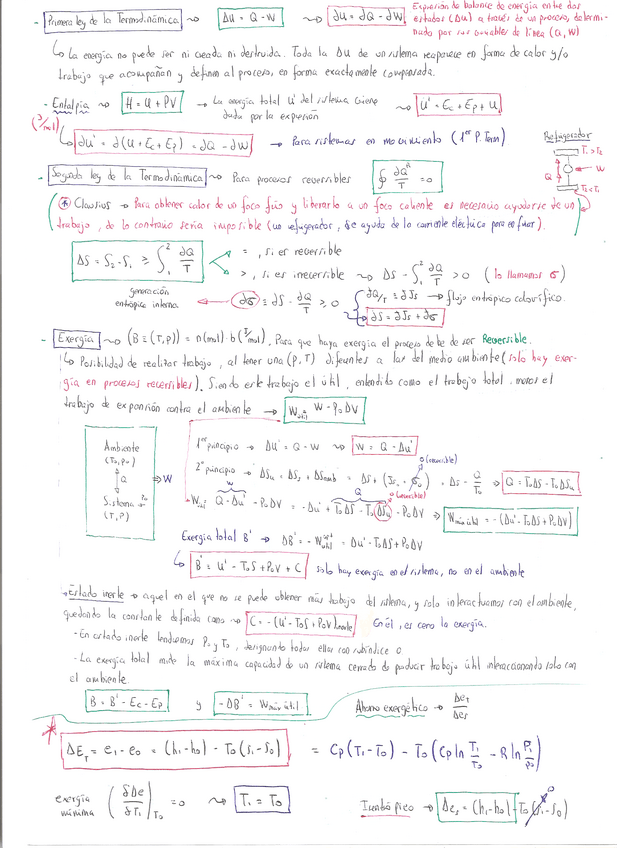 - Primera ley de la Termodinámica ~> ΔU = Q - W ~> ∂U = ∂Q - ∂W
Expresión de balance de energía entre dos
estados (ΔU) a través de un proceso, determi-
nado por sus variables de línea (Q, W)
↳ La energía no puede ser ni creada ni destruida. Toda la ΔU de un sistema reaparece en forma de calor y/o
trabajo que acompañan y definen al proceso, en forma exactamente compensada.
- Entalpía ~> H = U + PV → La energía total U' del sistema viene dada por la expresión ~> U' = Ec + Ep + U
(J/mol)
↳ ∂U' = ∂(U + Ec + Ep) = ∂Q - ∂W → Para sistemas en movimiento (1er P. Term)
Refrigerador
T1 > T2
Q W
T2 < T1
- Segunda ley de la Termodinámica ~> Para procesos reversibles ∮ ∂Q^R/T = 0
(* Clausius → Para obtener calor de un foco frío y liberarlo a un foco caliente es necesario ayudarse de un
trabajo, de lo contrario sería imposible (un refrigerador, se ayuda de la corriente eléctrica para enfriar).
ΔS = S2 - S1 ≥ ∫₁² ∂Q/T
= , si es reversible
> , si es irreversible ~> ΔS - ∫₁² ∂Q/T > 0 (lo llamamos σ)
generación
entrópica interna ← ∂σ ≡ ∂S - ∂Q/T ≥ 0
∂Q/T ≡ ∂Js → flujo entrópico calorífico.
→ ∂S = ∂Js + ∂σ
- Exergía ~> (B ≡ (T,P)) = n(mol)·b(J/mol). Para que haya exergía el proceso debe de ser Reversible.
↳ Posibilidad de realizar trabajo, al tener una (P,T) diferentes a las del medio ambiente (solo hay exer-
gía en procesos reversibles). Siendo este trabajo el útil, entendido como el trabajo total menos el
trabajo de expansión contra el ambiente → Wútil = W - P0ΔV
Ambiente
(T0, P0)
Q
Sistema
(T, P)
P0
⇒ W
1er principio → ΔU' = Q - W ~> W = Q - ΔU'
2º principio → ΔSu = ΔSs + ΔSamb = ΔS + (Js0 - σ0) = ΔS - Q/T0 ⇒ Q = T0ΔS - T0ΔSu
0 (reversible)
Wútil = Q - ΔU' - P0ΔV = -ΔU' + T0ΔS - T0ΔSu - P0ΔV ⇒ Wmáx útil = -(ΔU' - T0ΔS + P0ΔV)
W Q 0 (reversible)
Exergía total B' → ΔB' = -Wútil = ΔU' - T0ΔS + P0ΔV
↳ B' = U' - T0S + P0V + C solo hay exergía en el sistema, no en el ambiente
- Estado inerte → aquel en el que no se puede obtener más trabajo del sistema, y solo interactuamos con el ambiente,
quedando la constante definida como ~> C = -(U' - T0S + P0V)inerte En él, es cero la exergía.
- En estado inerte tendremos P0 y T0, designando todas ellas con subíndice 0.
- La exergía total mide la máxima capacidad de un sistema cerrado de producir trabajo útil interaccionando solo con
el ambiente.
B = B' - Ec - Ep y -ΔB' = Wmáx útil Ahorro exergético → ΔeT/Δes
* ΔET = e1 - e0 = (h1 - h0) - T0(s1 - s0) = Cp(T1 - T0) - T0(Cp ln T1/T0 - R ln P1/P0)
exergía
mínima (∂Δe/∂T1)T0 = 0 ~> T1 = T0 Isentrópico → Δes = (h1 - h0) - T0(s1 - s0) 0